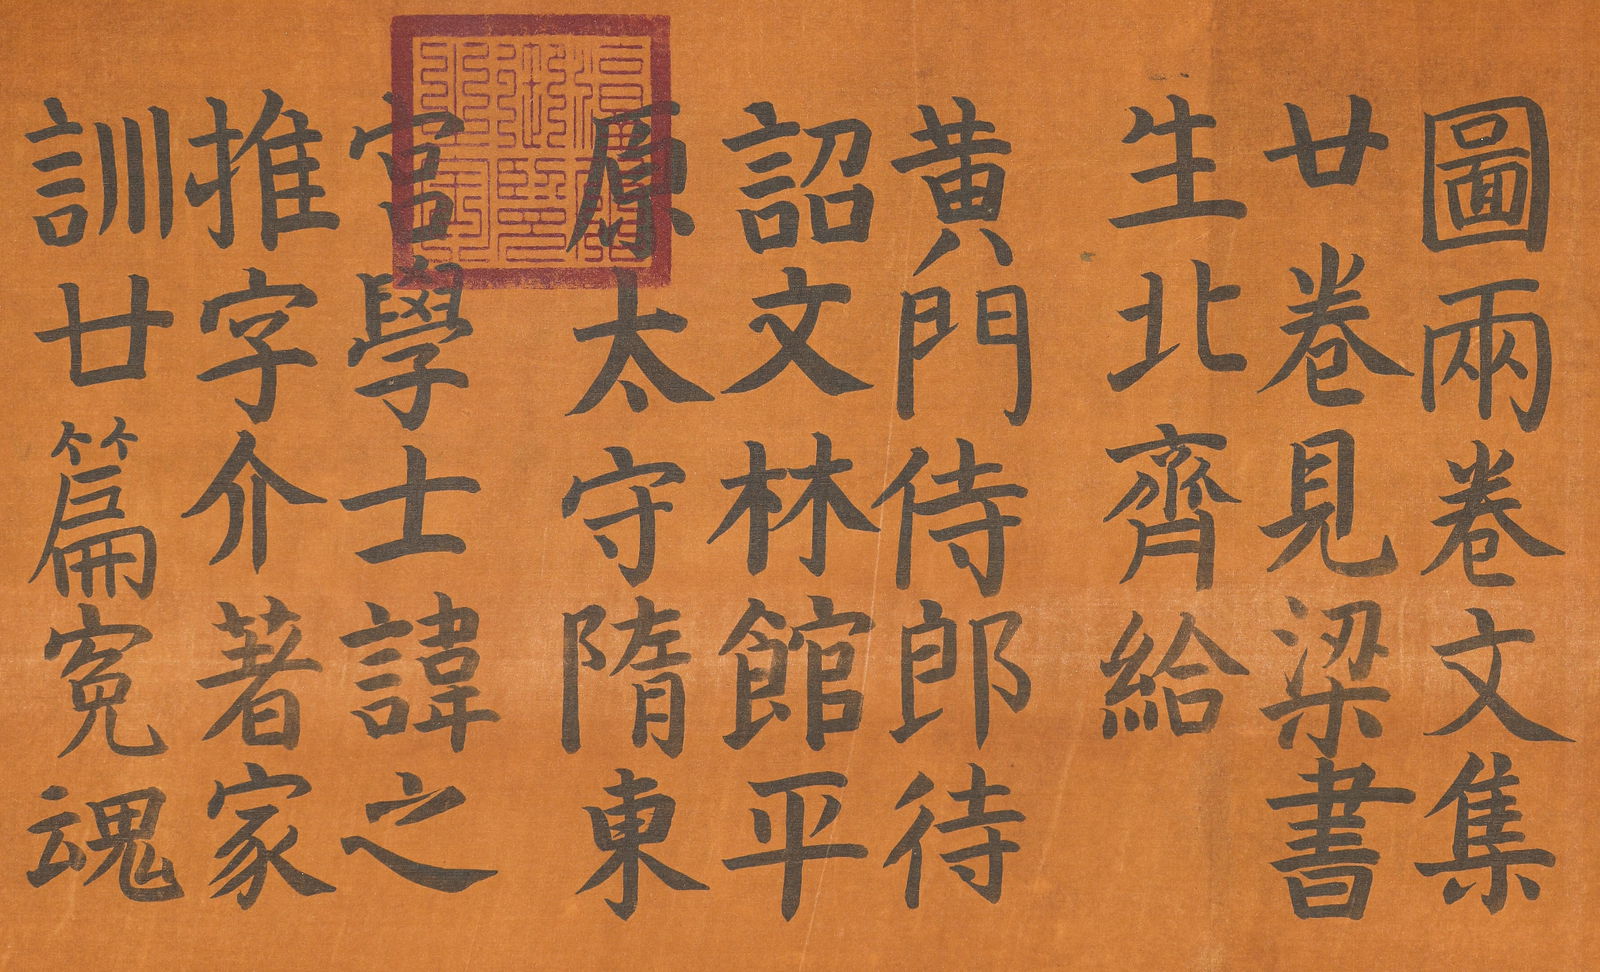 圖兩卷文集
廿卷見梁書
生北齊給
黃門侍郎待
詔文林館平
原太守隋東
宮學士諱之
推字介著家
訓廿篇冤魂